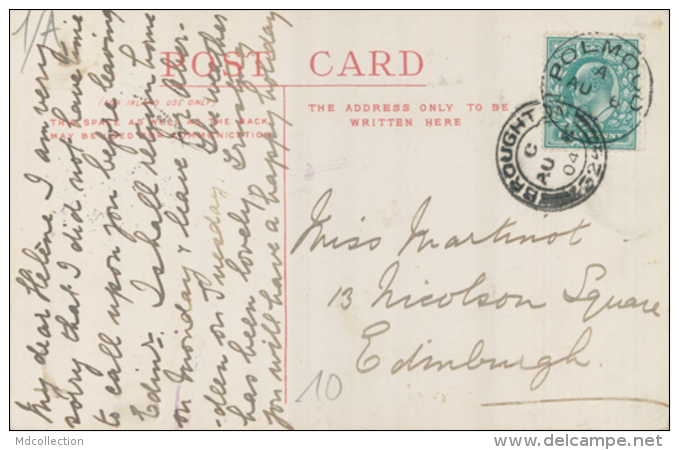 1/A
POST CARD
(FOR INLAND USE ONLY)
THIS SPACE AS WELL AS THE BACK
MAY BE USED FOR COMMUNICATION
THE ADDRESS ONLY TO BE
WRITTEN HERE
POLMO
A
AU 6
BROUGHTON
C
AU
04
My dear Helène, I am very
sorry that I did not have time
to call upon you before leaving
Edinr. I shall return home
on Monday & leave for Aber-
-deen on Tuesday. The weather
has been lovely. I trust
you will have a happy holiday
Miss Martinot
13 Nicolson Square
Edinburgh.
10
Mdcollection
www.delcampe.net